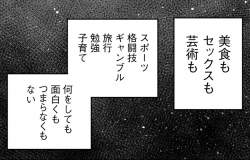 美食も
セックスも
芸術も
スポーツ
格闘技
ギャンブル
旅行
勉強
子育て
何をしても
面白くも
つまらなくも
ない